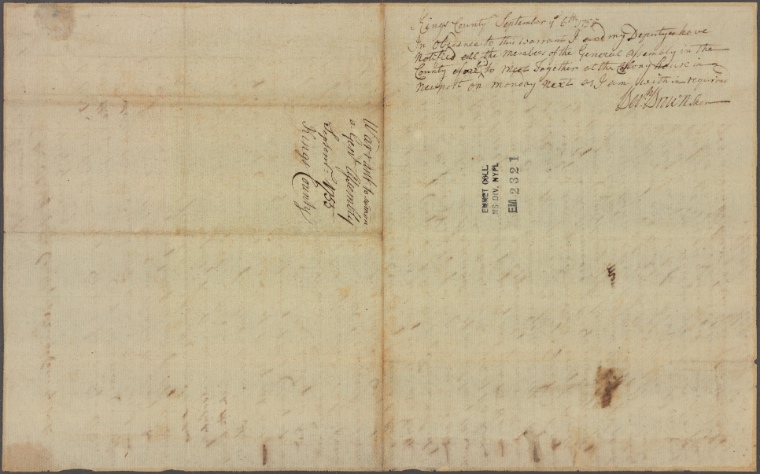 Kings County September ye 6th 1755
In Obediance to this warrant I and my Deputys have
Notified all the members of the General Assembly in the
County to Meet Together at the Colony House in
Newport on monday Next as I am with in required
Brown
Warrant to
a Genl Assembly
Septembr 1755
Kings County
EMMET COLL.
MS DIV. NYPL
EM 2321